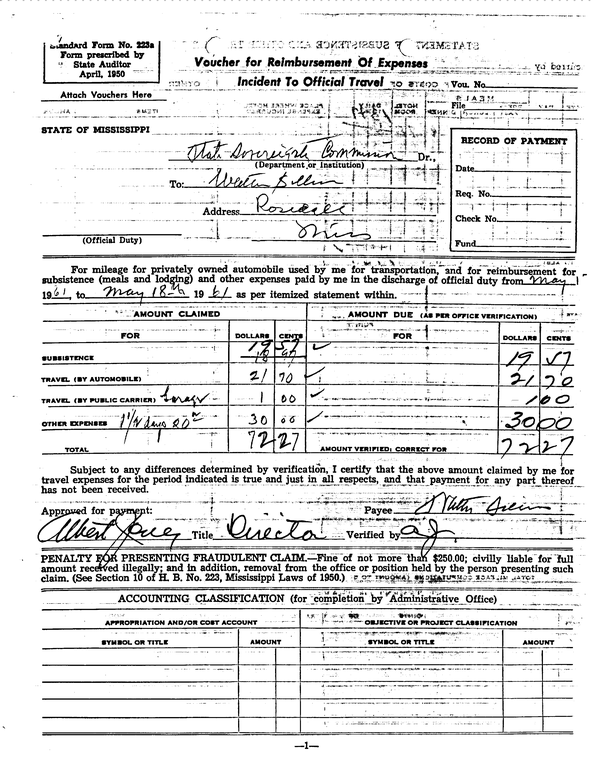 Standard Form No. 223a
Form prescribed by
State Auditor
April, 1950
Voucher for Reimbursement Of Expenses
Incident To Official Travel
Vou. No.
Attach Vouchers Here
File
STATE OF MISSISSIPPI
State Sovereignty Commission Dr.,
(Department or Institution)
To:
Address Rosedale
Miss
(Official Duty)
RECORD OF PAYMENT
Date
Req. No.
Check No.
Fund
For mileage for privately owned automobile used by me for transportation, and for reimbursement for
subsistence (meals and lodging) and other expenses paid by me in the discharge of official duty from May 1
1961, to May 18th 1961 as per itemized statement within.
AMOUNT CLAIMED AMOUNT DUE (AS PER OFFICE VERIFICATION)
FOR DOLLARS CENTS FOR DOLLARS CENTS
SUBSISTENCE 19 57 19 57
TRAVEL (BY AUTOMOBILE) 21 70 21 70
TRAVEL (BY PUBLIC CARRIER) 1 00 1 00
OTHER EXPENSES 1 1/2 days 20 30 00 30 00
TOTAL 72 27 AMOUNT VERIFIED; CORRECT FOR 72 27
Subject to any differences determined by verification, I certify that the above amount claimed by me for
travel expenses for the period indicated is true and just in all respects, and that payment for any part thereof
has not been received.
Approved for payment: Payee
Albert Jones Title Director Verified by aj
PENALTY FOR PRESENTING FRAUDULENT CLAIM.—Fine of not more than $250.00; civilly liable for full
amount received illegally; and in addition, removal from the office or position held by the person presenting such
claim. (See Section 10 of H. B. No. 223, Mississippi Laws of 1950.)
ACCOUNTING CLASSIFICATION (for completion by Administrative Office)
APPROPRIATION AND/OR COST ACCOUNT OBJECTIVE OR PROJECT CLASSIFICATION
SYMBOL OR TITLE AMOUNT SYMBOL OR TITLE AMOUNT
—1—